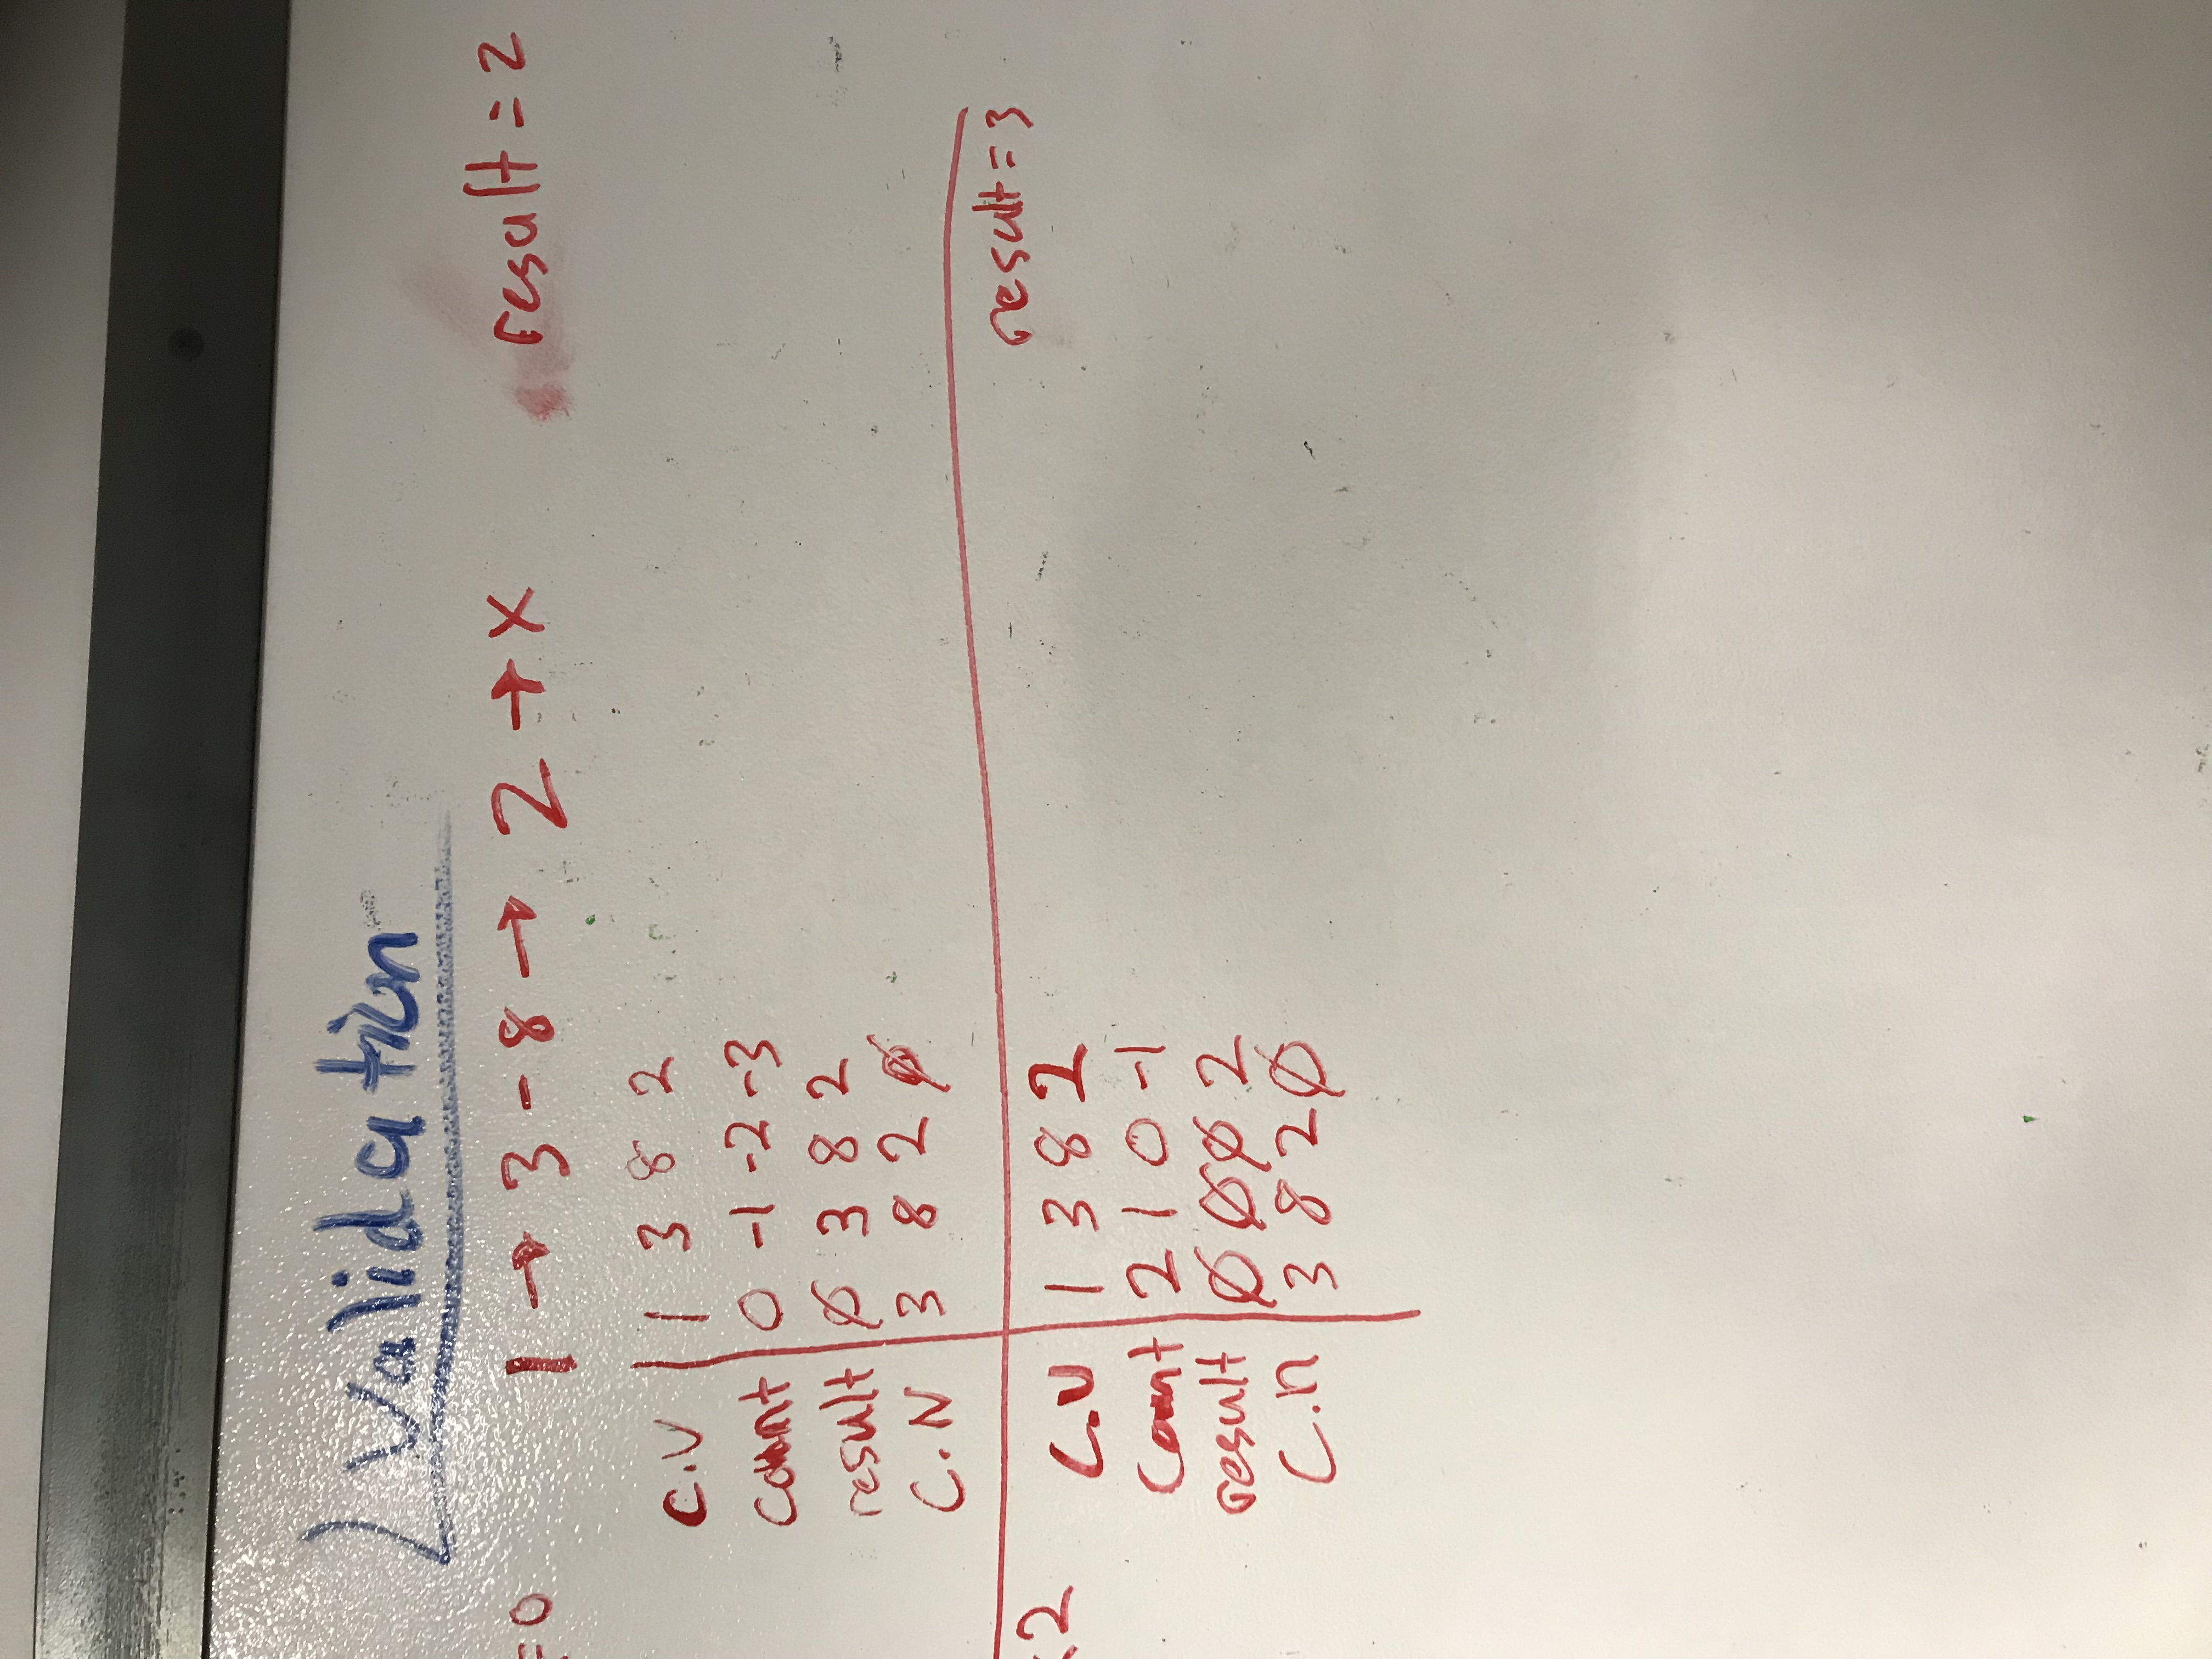 Validation
=0 1 → 3 - 8 → 2 → X result = 2
C.V 1 3 8 2
Count 0 -1 -2 -3
result Ø 3 8 2
C.N 3 8 2 Ø
result = 3
2 C.V 1 3 8 2
Count 2 1 0 -1
result Ø Ø Ø 2
C.n 3 8 2 Ø